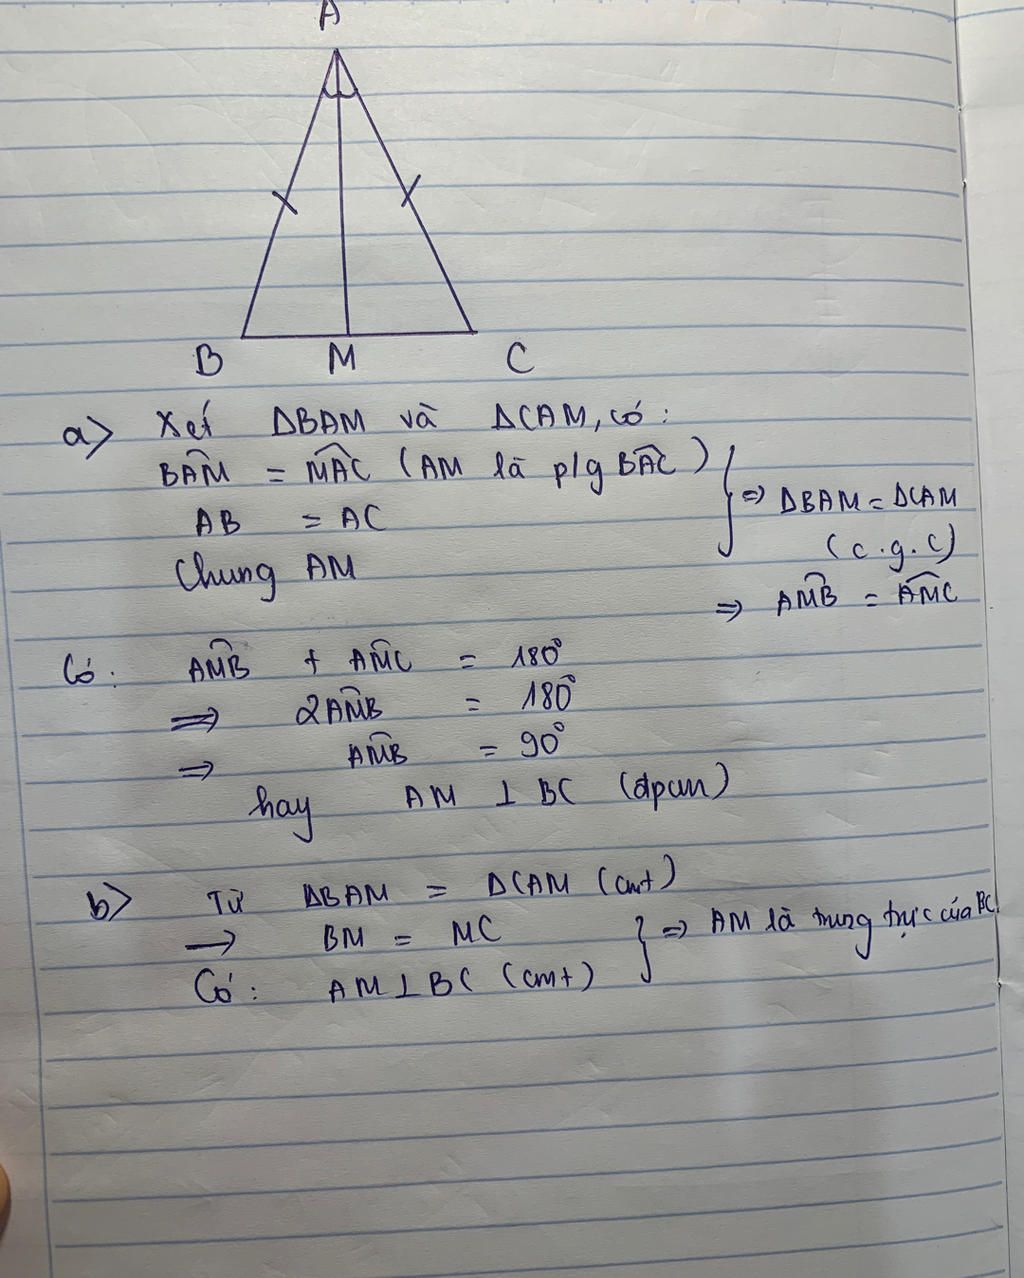 A
B M C
a> Xét ΔBAM và ΔCAM, có:
BAM̂ = MAĈ (AM là p/g BAĈ)
AB = AC
Chung AM
} => ΔBAM = ΔCAM
(c.g.c)
=> AM̂B = AM̂C
Có: AM̂B + AM̂C = 180°
=> 2AM̂B = 180°
=> AM̂B = 90°
hay AM ⊥ BC (đpcm)
b> Từ ΔBAM = ΔCAM (cmt)
→ BM = MC
Có: AM ⊥ BC (cmt)
} => AM là trung trực của BC